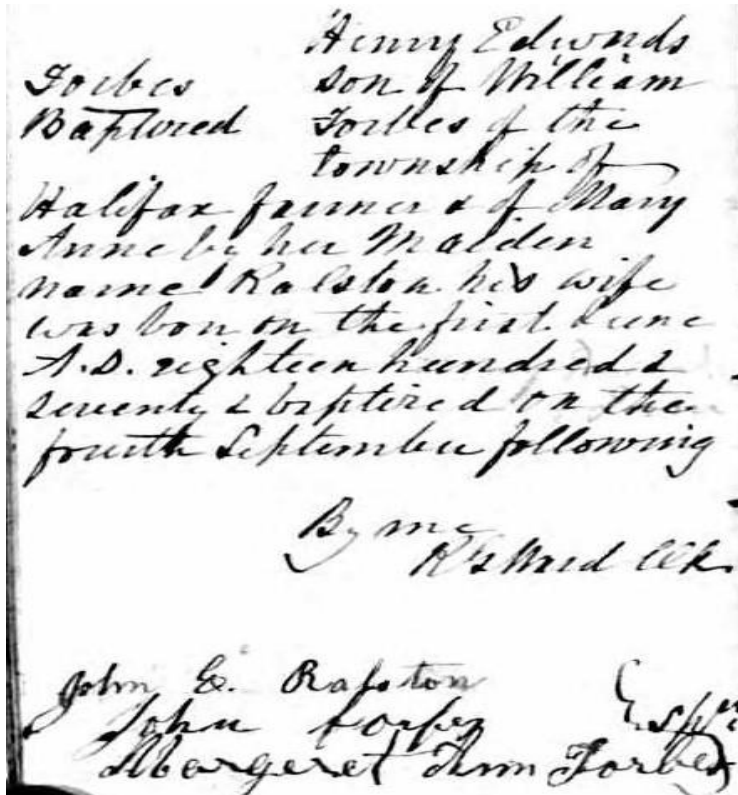 Henry Edwards
Forbes son of William
Baptised Forbes of the
township of
Halifax farmer & of Mary
Anne by her Maiden
name Ralston his wife
was born on the first June
A.D. eighteen hundred &
seventy & baptized on the
fourth September following
By me
Ward
John E. Ralston
John Forbes
Margeret Ann Forbes